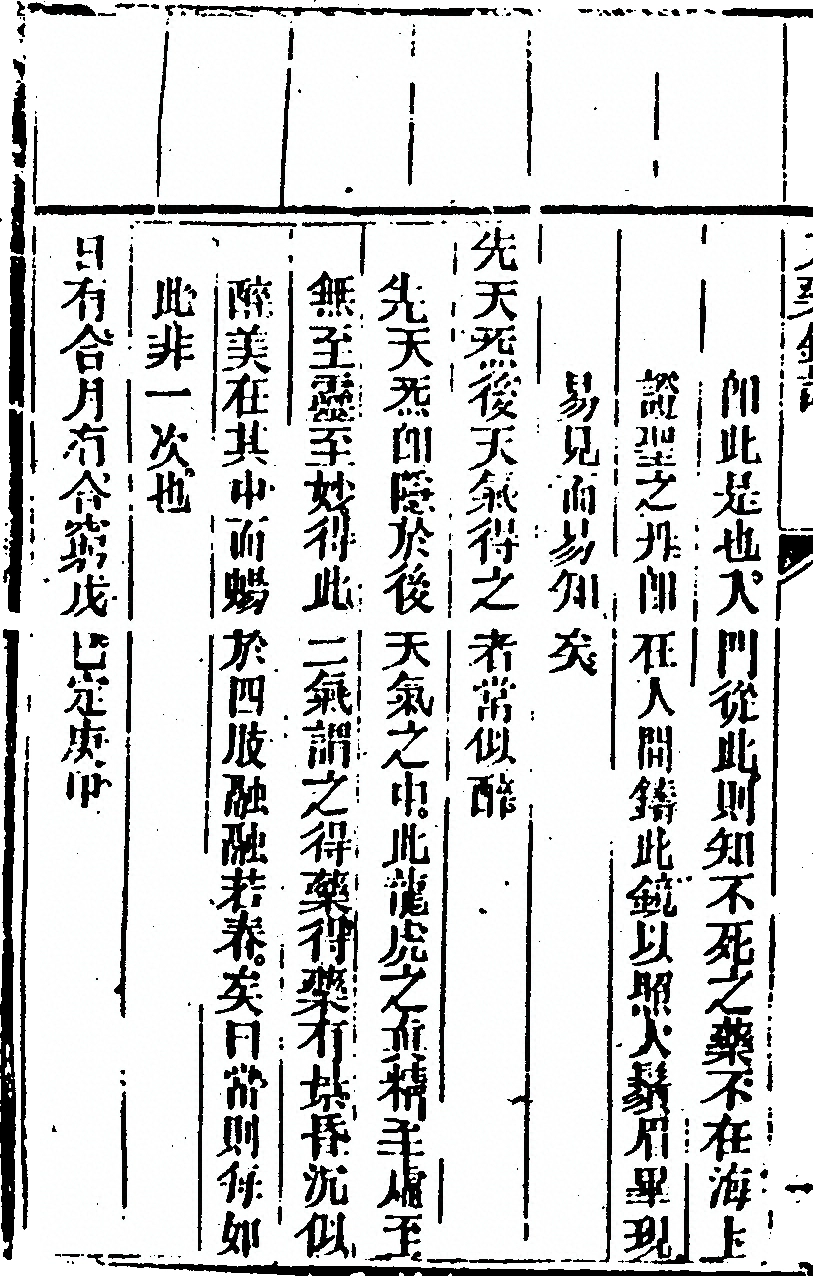 卽此是也入門從此則知不死之藥不在海上
證聖之丹卽在人間鑄此鏡以照人鬚眉畢現
易見而易知矣
先天炁後天氣得之者常似醉
先天炁卽隱於後天氣之中此龍虎之至精至虛至
無至靈至妙得此二氣謂之得藥得藥有
昏沉似
醉美在其中而暢於四肢融融若春矣曰常則每如
此非一次也
日有合月有合窮戊己定庚甲